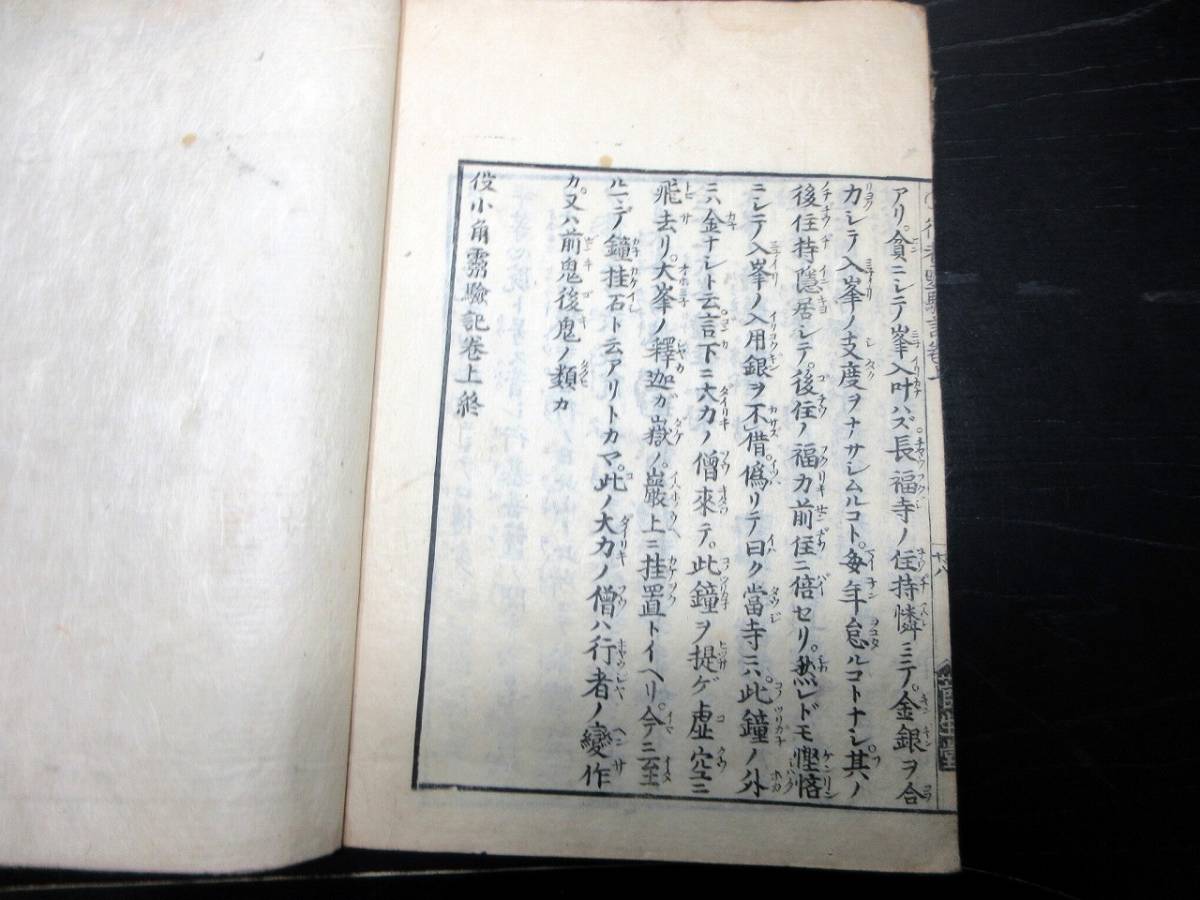 アリ。貧ニシテ峯入叶ハズ。長福寺ノ住持憐ミテ。金銀ヲ合
力シテ入峯ノ支度ヲナサシムルコト。毎年怠ルコトナシ。其ノ
後住持隱居シテ。後住ノ福力前住ニ倍セリ。然レドモ慳悋
ニシテ入峯ノ入用銀ヲ不借。僞リテ曰ク當寺ニハ。此鐘ノ外
ニハ金ナシト云。言下ニ大力ノ僧來テ。此鐘ヲ提ゲ虚空ニ
飛去リ。大峯ノ釋迦ガ嶽ノ。巖上ニ挂置トイヘリ。今ニ至
ルマデ鐘挂石ト云アリトカマ。此ノ大力ノ僧ハ行者ノ變作
カ。又ハ前鬼後鬼ノ類カ
役小角靈驗記卷上終
十八